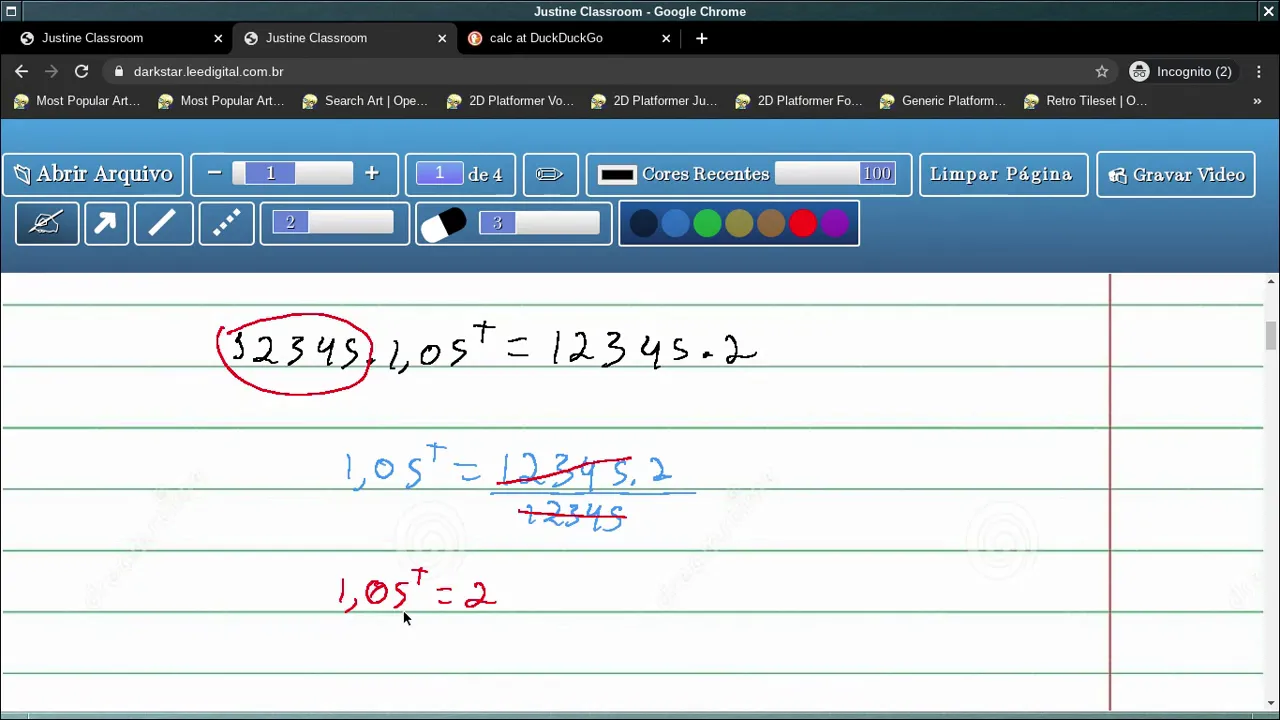 Justine Classroom - Google Chrome
Justine Classroom
Justine Classroom
calc at DuckDuckGo
darkstar.leedigital.com.br
Incognito (2)
Most Popular Art...
Most Popular Art...
Search Art | Ope...
2D Platformer Vo...
2D Platformer Ju...
2D Platformer Fo...
Generic Platform...
Retro Tileset | O...
»
Abrir Arquivo
− 1 +
1 de 4
Cores Recentes 100
Limpar Página
Gravar Video
2
3
12345.1,05^t = 12345.2
1,05^t = 12345.2
12345
1,05^t = 2